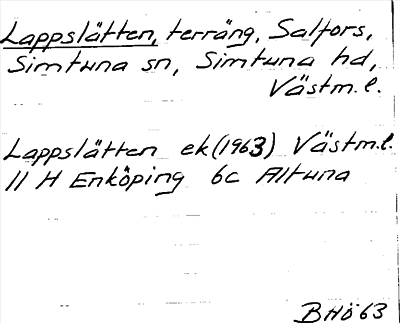 Lappslätten, terräng, Salfors,
Simtuna sn, Simtuna hd,
Västm.l.
Lappslätten ek(1963) Västm.l.
11 H Enköping 6c Altuna
BHö63